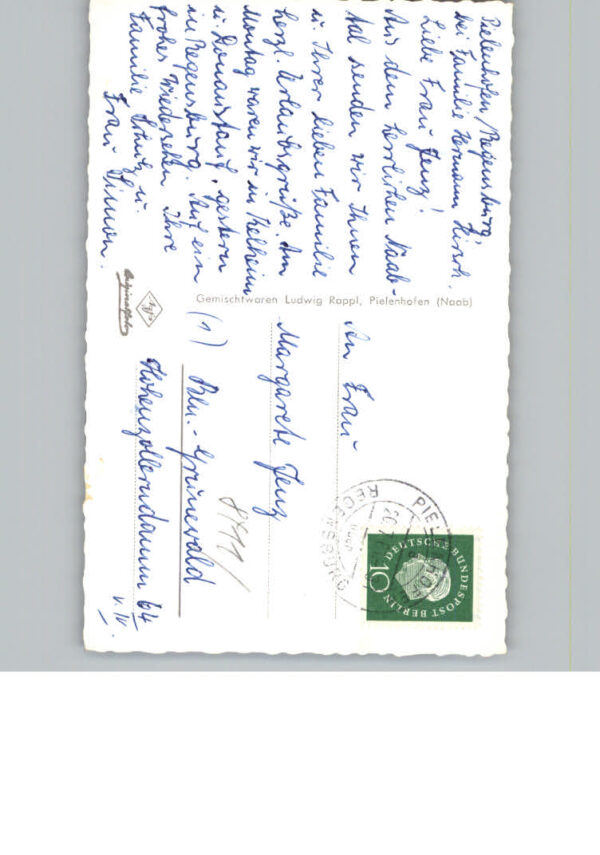 Pielenhofen/Regensburg,
bei Familie Hermann Hirsch.
Liebe Frau Jenz!
Aus dem herrlichen Naab-
tal senden wir Ihnen
u. Ihrer lieben Familie
herzl. Urlaubsgrüße. Am
Montag waren wir in Kelheim
u. Donaustauf, gestern
in Regensburg. Auf ein
frohes Wiedersehen Ihre
Familie u.
Frau Simon.
Gemischtwaren Ludwig Rappl, Pielenhofen (Naab)
Agfa
Originalfoto
An Frau
Margarete Jenz
(1) Bln.-Grunewald
Hohenzollerndamm 64
v. IV.
DEUTSCHE BUNDESPOST BERLIN
10
REGENSBURG